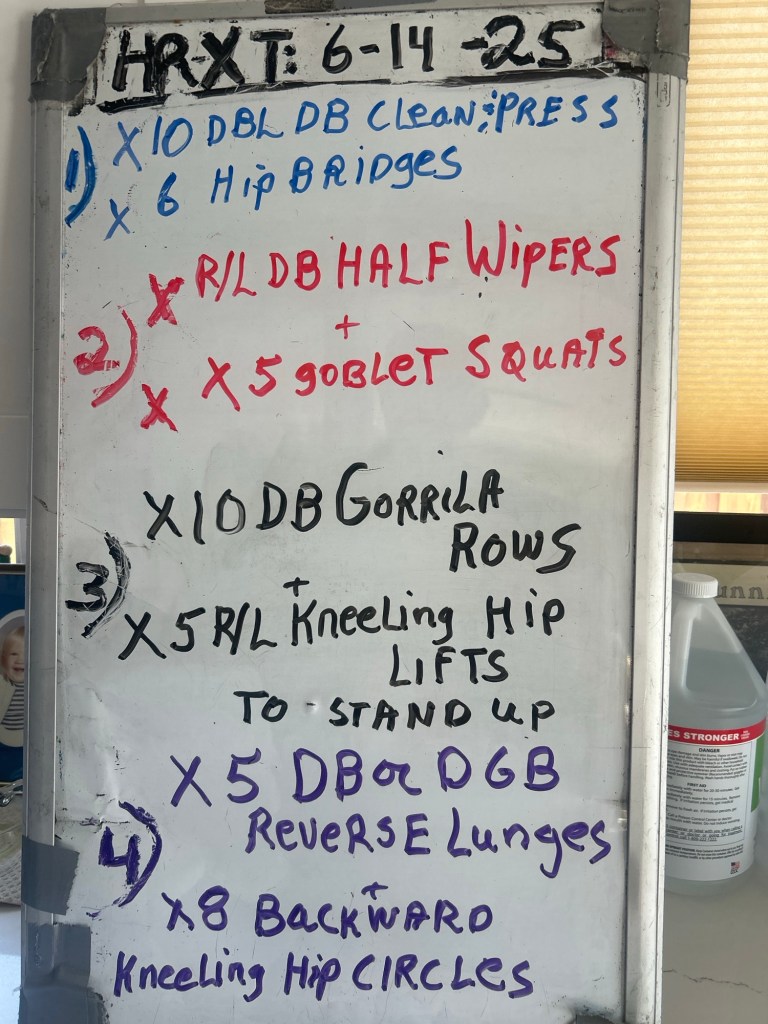 HR-XT: 6-14-25
1) X10 DBL DB Clean & PRESS
X 6 Hip BRidges
X R/L DB HALF WipERS
+
2)
X X5 goBLET SQUATS
X10 DB GORRILA
ROWS
3) +
X5 R/L Kneeling Hip
LIFTS
TO - STAND UP
X5 DB or DGB
4) ReveRSE Lunges
+
X8 BackWARD
Kneeling Hip CIRCLeS
ES STRONGER
DANGER
FIRST AID